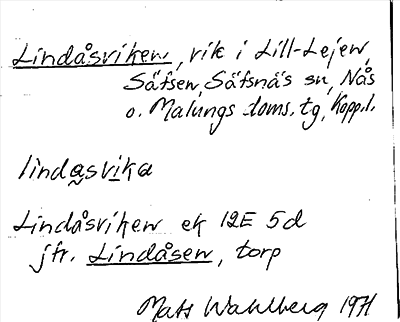 Lindåsviken, vik i Lill-Lejen,
Säfsen, Säfsnäs sn, Nås
o. Malungs doms. tg, Kopp.l.
lindasvika
Lindåsviken ek 12E 5d
jfr. Lindåsen, torp
Mats Wahlberg 1971